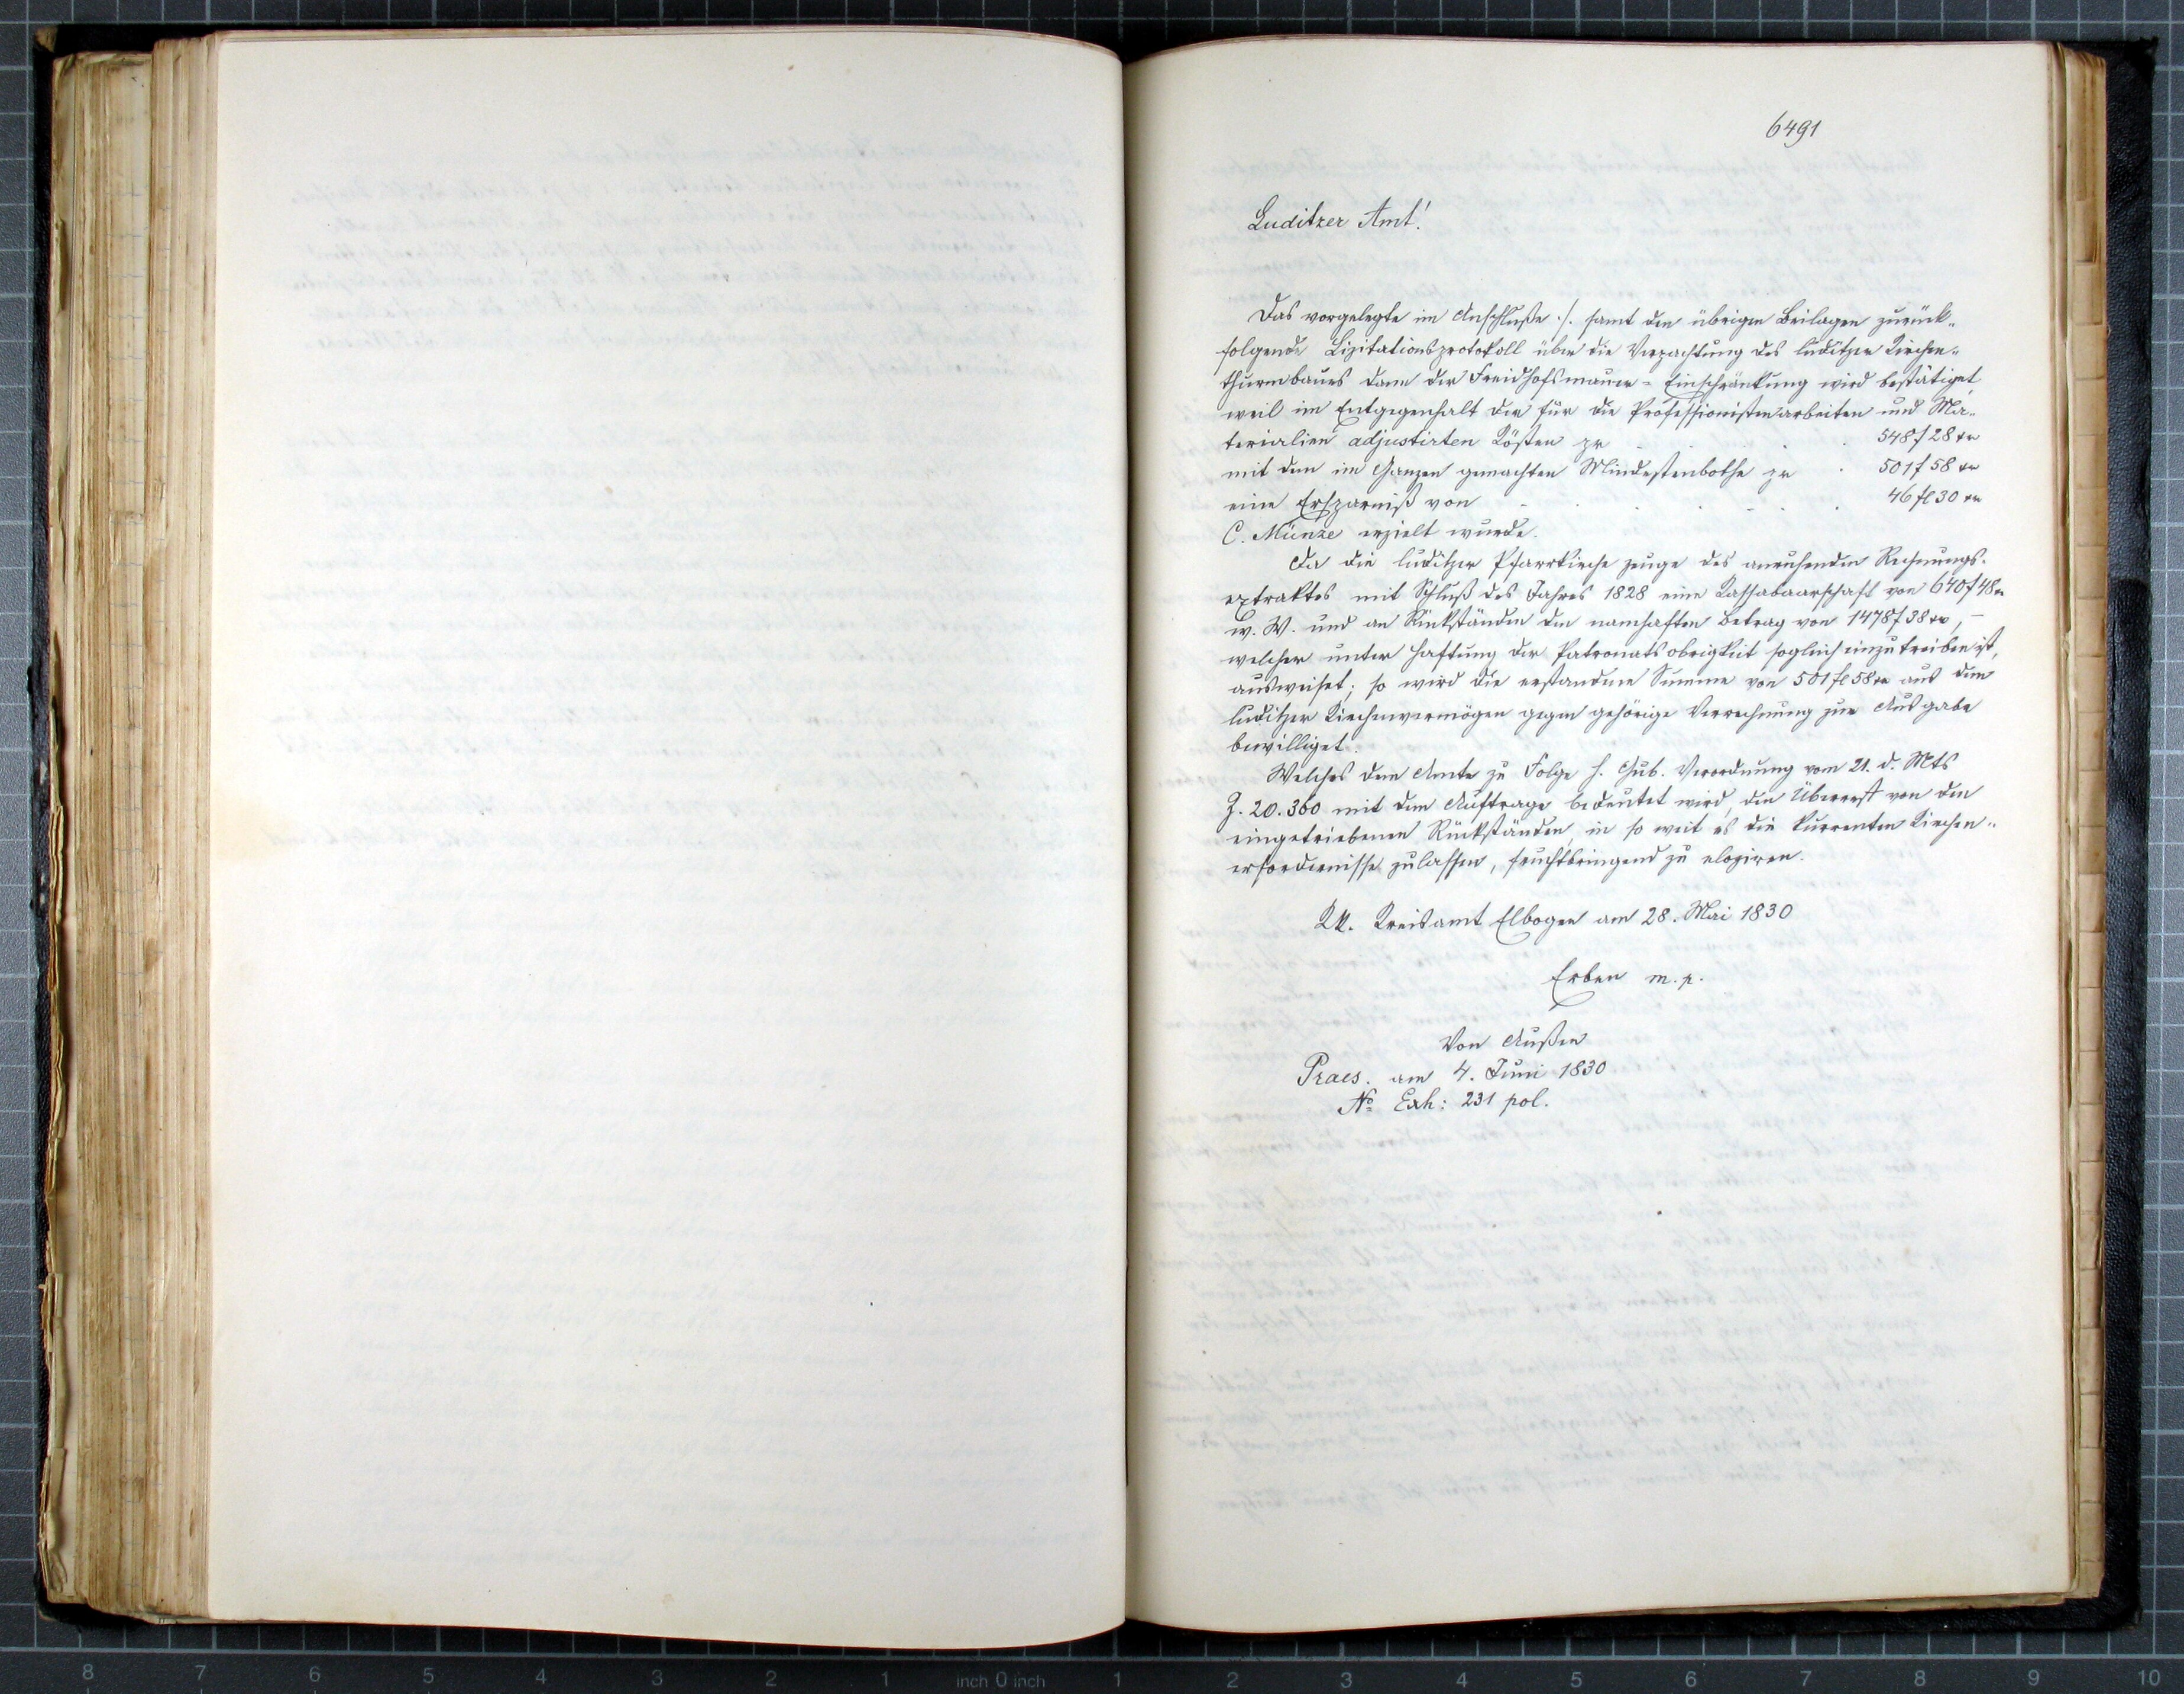 6491
Luditzer Amt!
Das vorgelegte im Anschluße ./. samt den übrigen Beilagen zurück„
folgende Lizitationsprotokoll über die Verpachtung des luditzer Kirchen„
thurmbaues dann der Freidhofsmauer = Einschränkung wird bestätiget
weil im Entgegenhalt der für die Professionistenarbeiten und Ma„
terialien adjustirten Kösten pr 548 f 28 xr
mit dem im Ganzen gemachten Mindestenbothe pr 501 f 58 xr
eine Ersparniß von 46 fl 30 xr
C. Münze erzielt wurde.
Da die luditzer Pfarrkirche zeuge des anruhenden Rechnungs„
extraktes mit Schluß des Jahres 1828 eine Kassabaarschaft von 640 f 48 xr
w. W. und an Rückständen den namhaften Betrag von 1478 f 38 xr,
welcher unter Haftung der Patronatsobrigkeit sogleich einzutreiben ist,
ausweiset; so wird die erstandene Summe von 501 fl 58 xr aus dem
luditzer Kirchenvermögen gegen gehörige Verrechnung zur Ausgabe
bewilliget.
Welches dem Amte zu Folge h. Gub. Verordnung vom 21. d. Mts
Z. 20.360 mit dem Auftrage bedeutet wird, den Überrest von den
eingetriebenen Rückständen, in so weit es die kurrenten Kirchen„
erfordernisse zulassen, fruchtbringend zu eloziren.
KK. Kreisamt Elbogen am 28. Mai 1830
Erben m. p.
Von Außen
Praes. am 4. Juni 1830
No Exh: 231 pol.
8 7 6 5 4 3 2 1 inch 0 inch 1 2 3 4 5 6 7 8 9 10